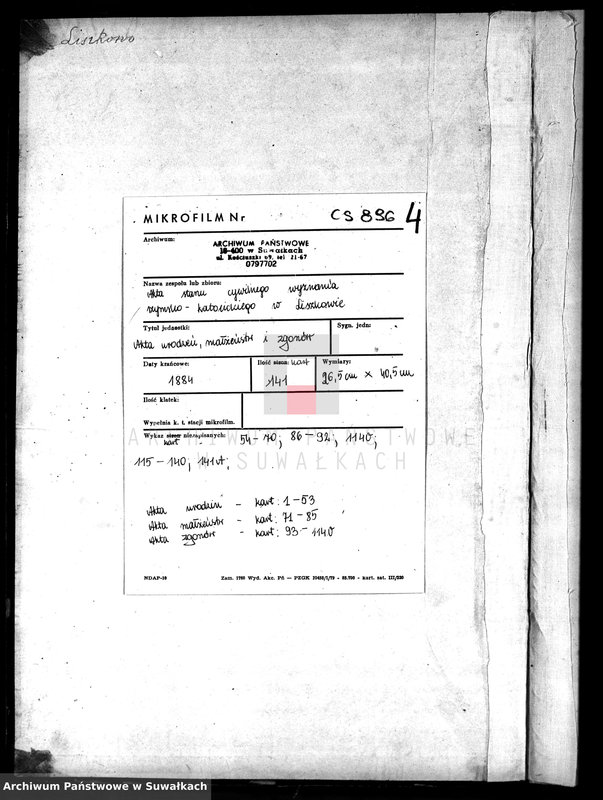 Liszkowo
MIKROFILM Nr CS 896 4
Archiwum: ARCHIWUM PAŃSTWOWE
16-400 w Suwałkach
ul. Kościuszki 69, tel 21-67
0797702
Nazwa zespołu lub zbioru:
Akta stanu cywilnego wyznania
rzymsko-katolickiego w Liszkowie
Tytuł jednostki: Sygn. jedn:
Akta urodzeń, małżeństw i zgonów
Daty krańcowe: Ilość stron: kart Wymiary:
1884 141 26,5 cm × 40,5 cm
Ilość klatek:
Wypełnia k. t. stacji mikrofilm.
Wykaz stron niezapisanych: 54-70; 86-92; 114v;
kart
115-140; 141v;
Akta urodzeń - kart: 1-53
Akta małżeństw - kart: 71-85
Akta zgonów - kart: 93-114v
NDAP-10 Zam. 2760 Wyd. Akc. Pś — PZGK
ARCHIWUM PAŃSTWOWE
W SUWAŁKACH
Archiwum Państwowe w Suwałkach